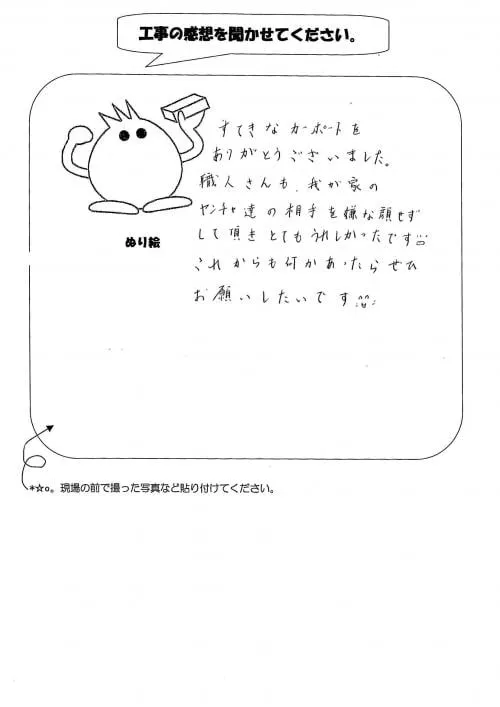 工事の感想を聞かせてください。
すてきなカーポートを
ありがとうございました。
職人さんも、我が家の
ヤンチャ達の相手を嫌な顔せず
して頂きとてもうれしかったです
これからも何かあったらぜひ
お願いしたいです
ぬり絵
*☆o。現場の前で撮った写真など貼り付けてください。